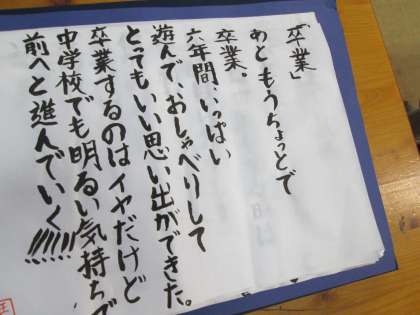 「卒業」
あともうちょっとで
卒業。
六年間、いっぱい
遊んで、おしゃべりして
とてもいい思い出ができた。
卒業するのはイヤだけど
中学校でも明るい気持ちで
前へと進んでいく!!!!!!